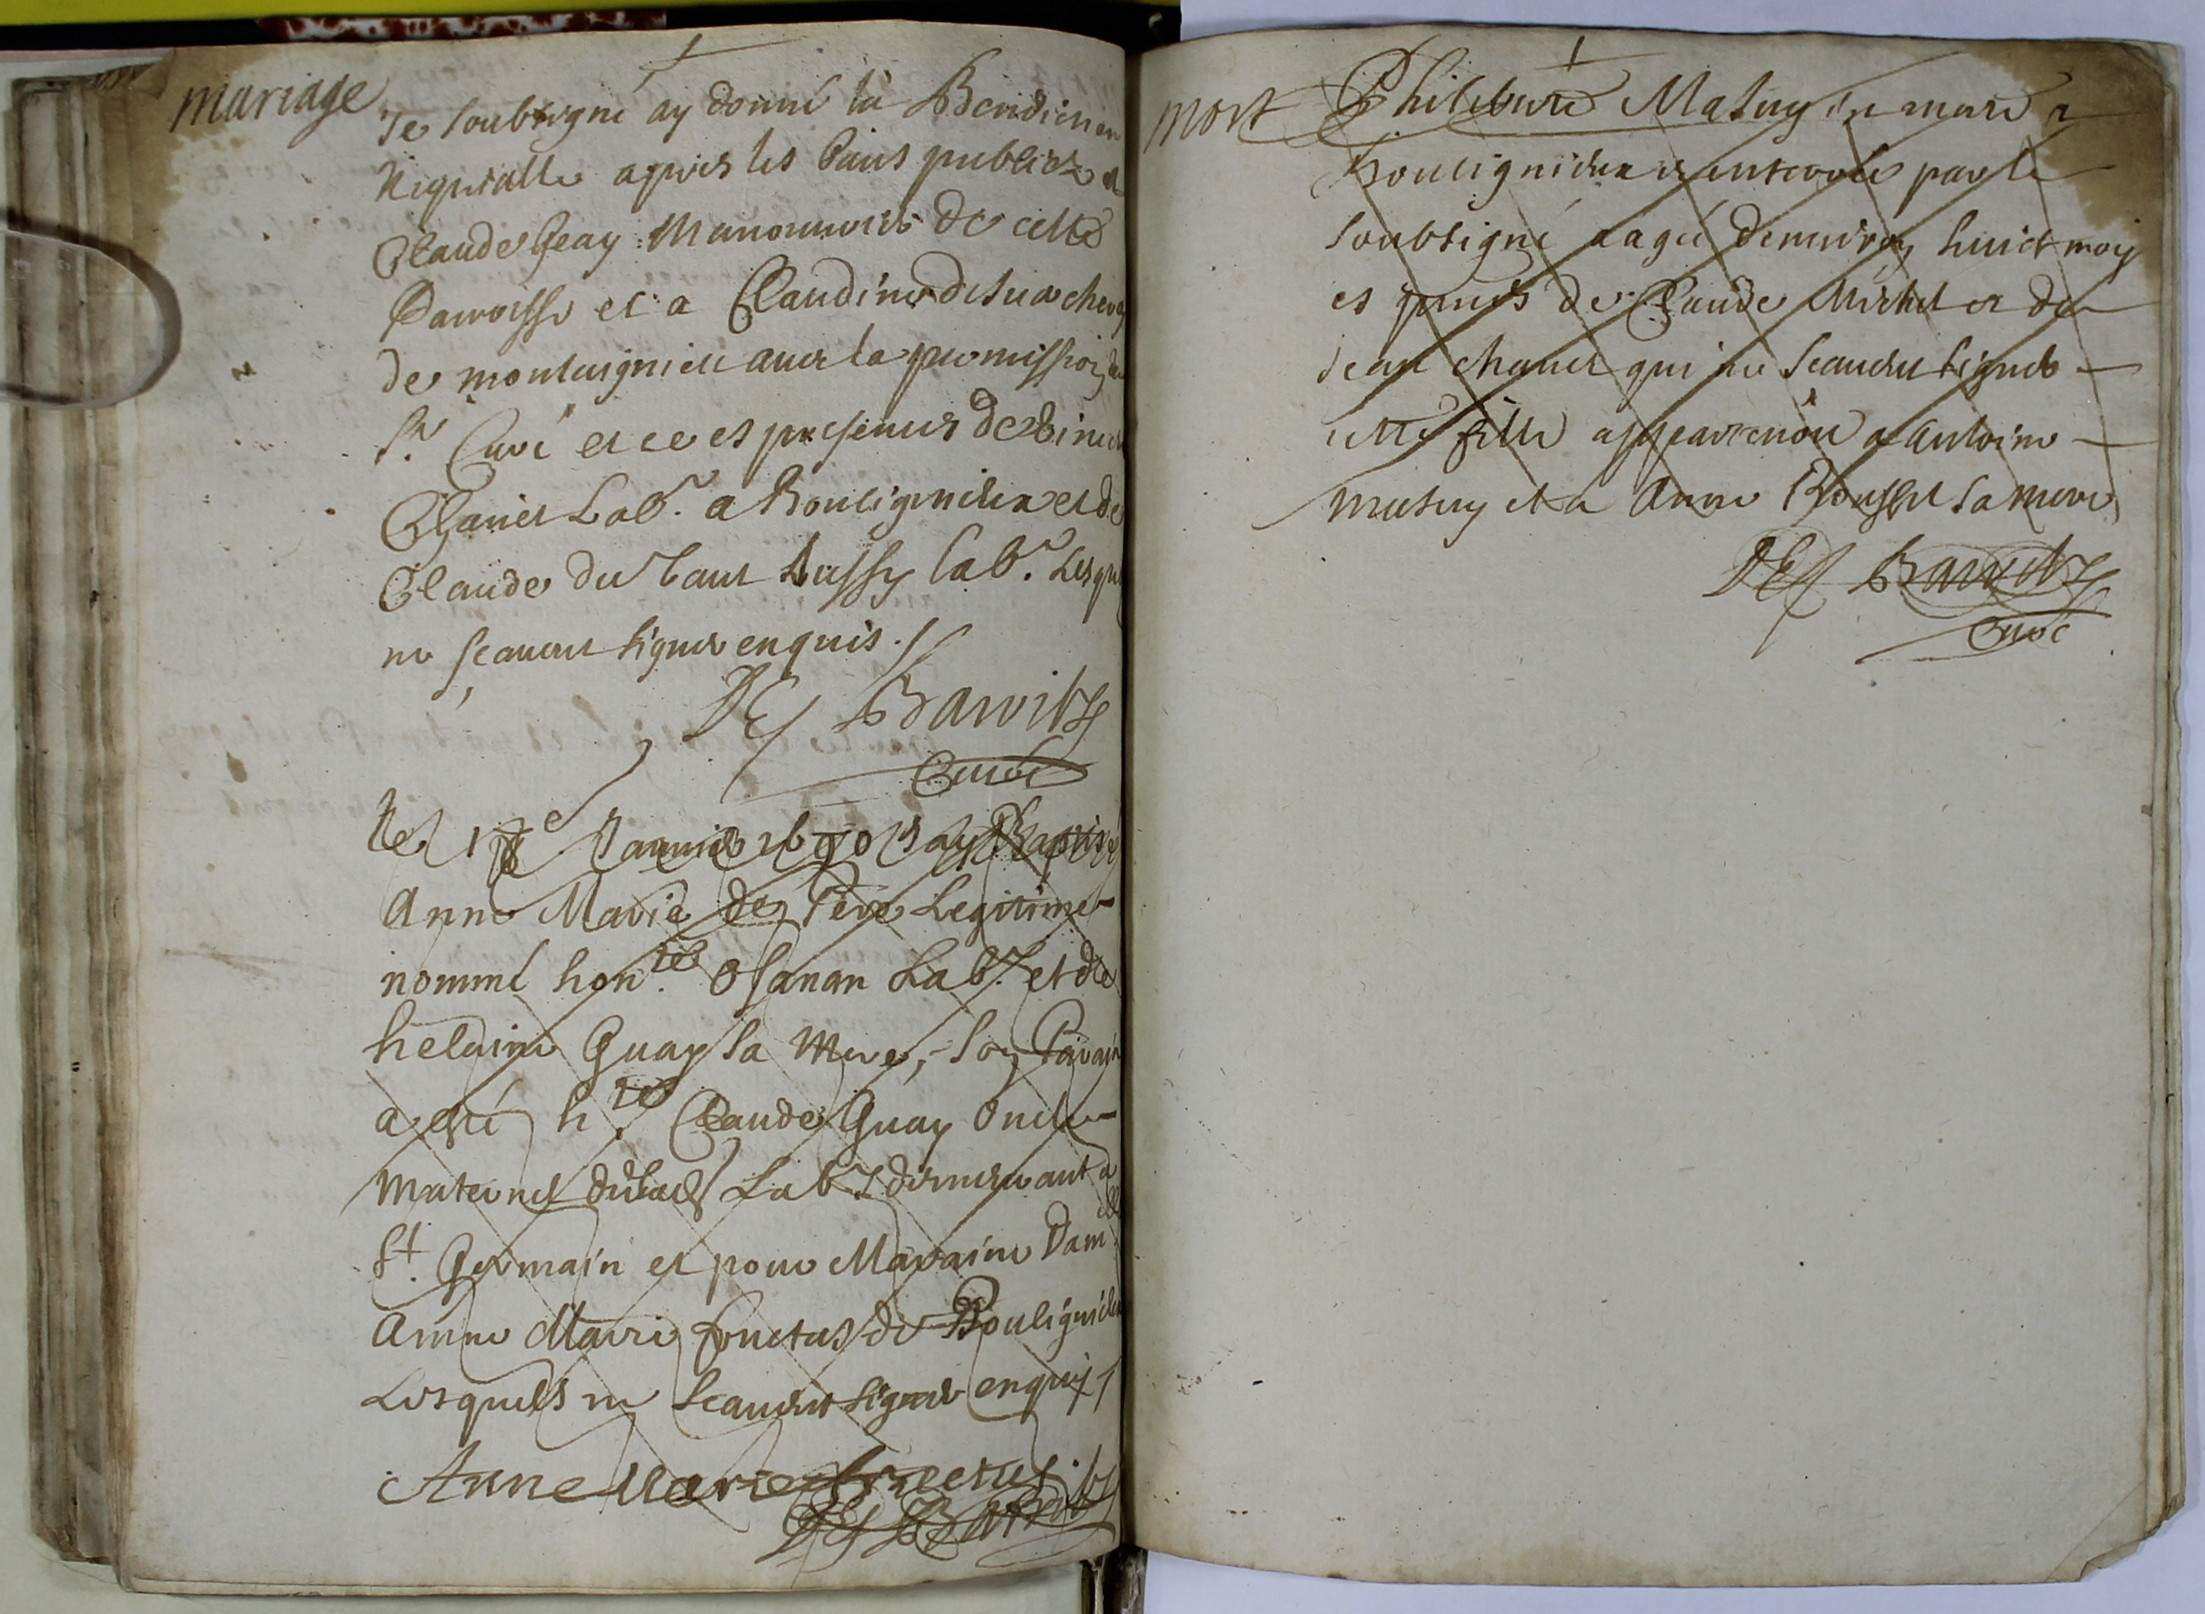 mariage
Je soubsigné ay donné la Benediction
Nuptialle apres les bans publiez a
Claude Geay Manouvrier de cette
Parroisse et a Claudine
de montagnieu avec la permission du
Sr. Curé et ce es presences de
Chanet Lab.r a Bouligneux et de
Claude du Lab.r Lesquels
ne scavent signer enquis ./
DES Barrits
Curé
Le Janvier jay Baptisé
Anne Marie de Pere Legitime
nommé hon.tes Osanan Lab.r et de
helaine Guay sa mere, Son Parain
a esté h.tes Claude Guay Oncle
maternel Lab.r demeurant a
St. Germain et pour Maraine Dam.lle
Anne Marie de Bouligneux
Lesquels ne scavent signer enquis /
Anne Marie
DES Barrits
mort
Matuy est mort a
Bouligneux et enterré par le
soubsigné aagé denviron huict mois
es pnces de Claude Michel et de
Jean Chanet qui ne scavent signer
cette fille appartenoit a Antoine
Matuy et a Anne sa mere
DES Barrits
Curé